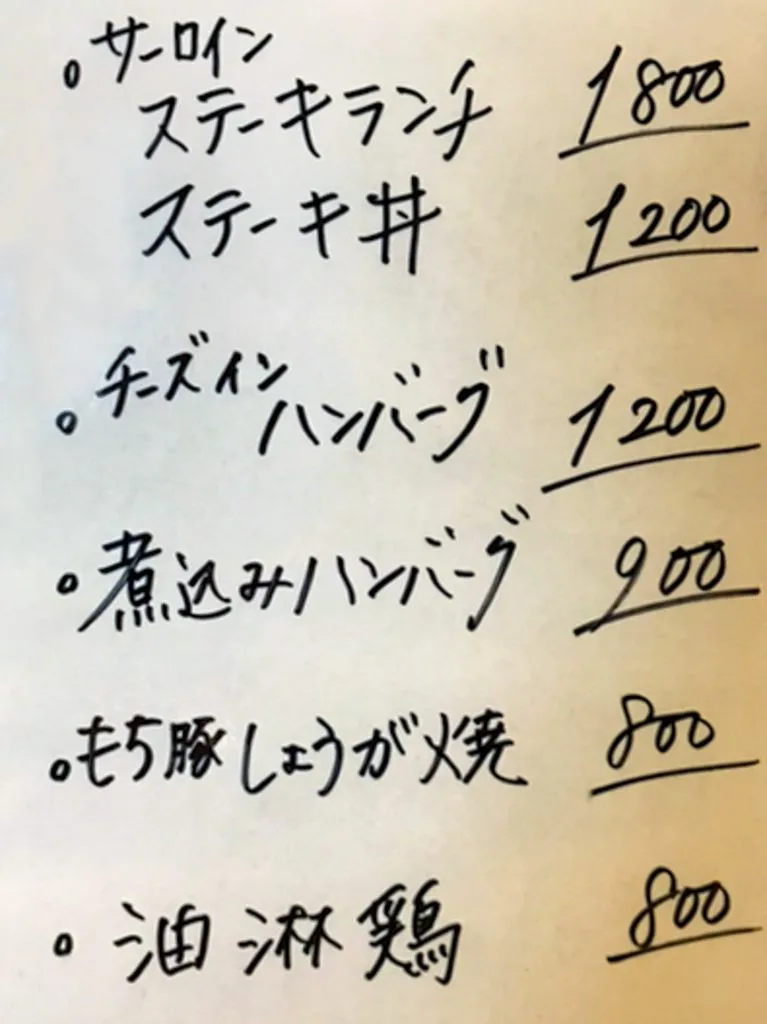 。サーロイン
ステーキランチ 1800
ステーキ丼 1200
。チーズイン
ハンバーグ 1200
。煮込みハンバーグ 900
。もち豚しょうが焼 800
。油淋鶏 800